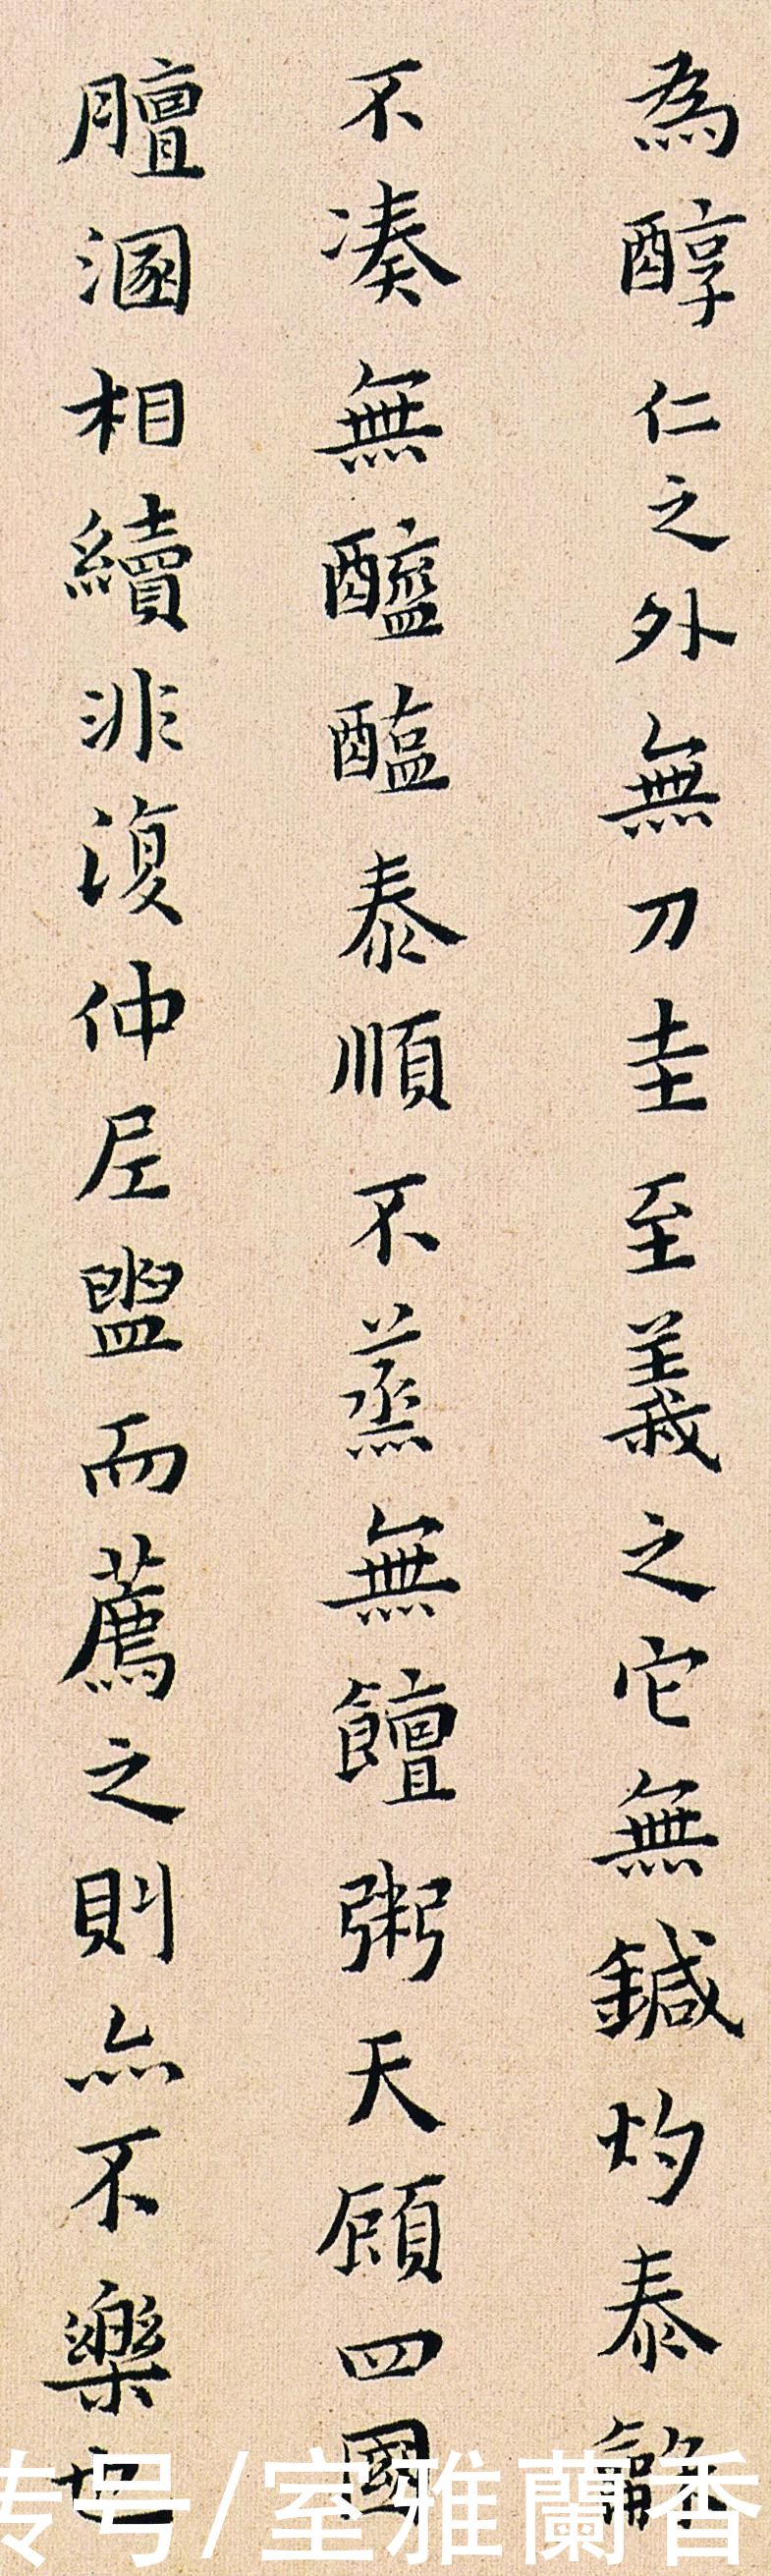 為醇仁之外無刀圭至義之它無鍼灼泰龢
不湊無醯醢泰順不蒸無饘粥天顧四國
膻溷相續非復仲尼盥而薦之則亦不樂也
号/室雅蘭香